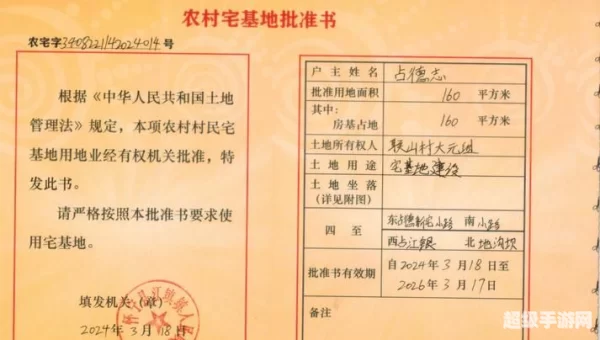 农村宅基地批准书
农宅字3408221142024014号
根据《中华人民共和国土地
管理法》规定,本项农村村民宅
基地用地业经有权机关批准,特
发此书。
请严格按照本批准书要求使
用宅基地。
填发机关(章)
2024年3月18日
户主姓名 占德志
批准用地面积 160 平方米
其中:
房基占地 160 平方米
土地所有权人 联山村大元组
土地用途 宅基地建设
土地坐落
(详见附图)
四至 东 小路 南 小路
西占江银 北 地沟坝
批准书有效期 自2024年3月18日至
2026年3月17日
备注
超级手游网